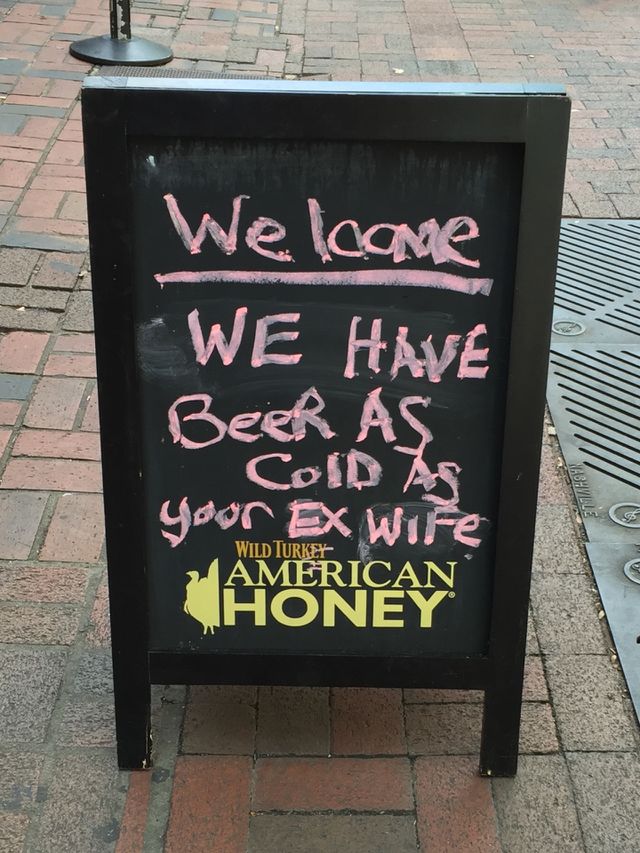 Welcome
WE HAVE
BeeR AS
ColD As
your Ex wife
WILD TURKEY
AMERICAN
HONEY®
NASHVILLE